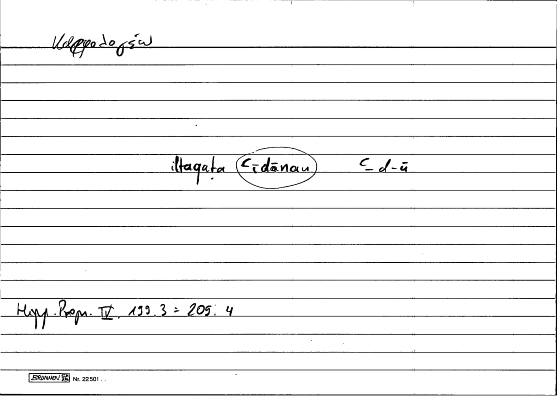 καρφολογέω
iltaqaṭa ʿīdānan ʿ-d-ū
Hipp. Progn. IV. 199.3 = 209: 4
BRUNNEN Nr. 22501